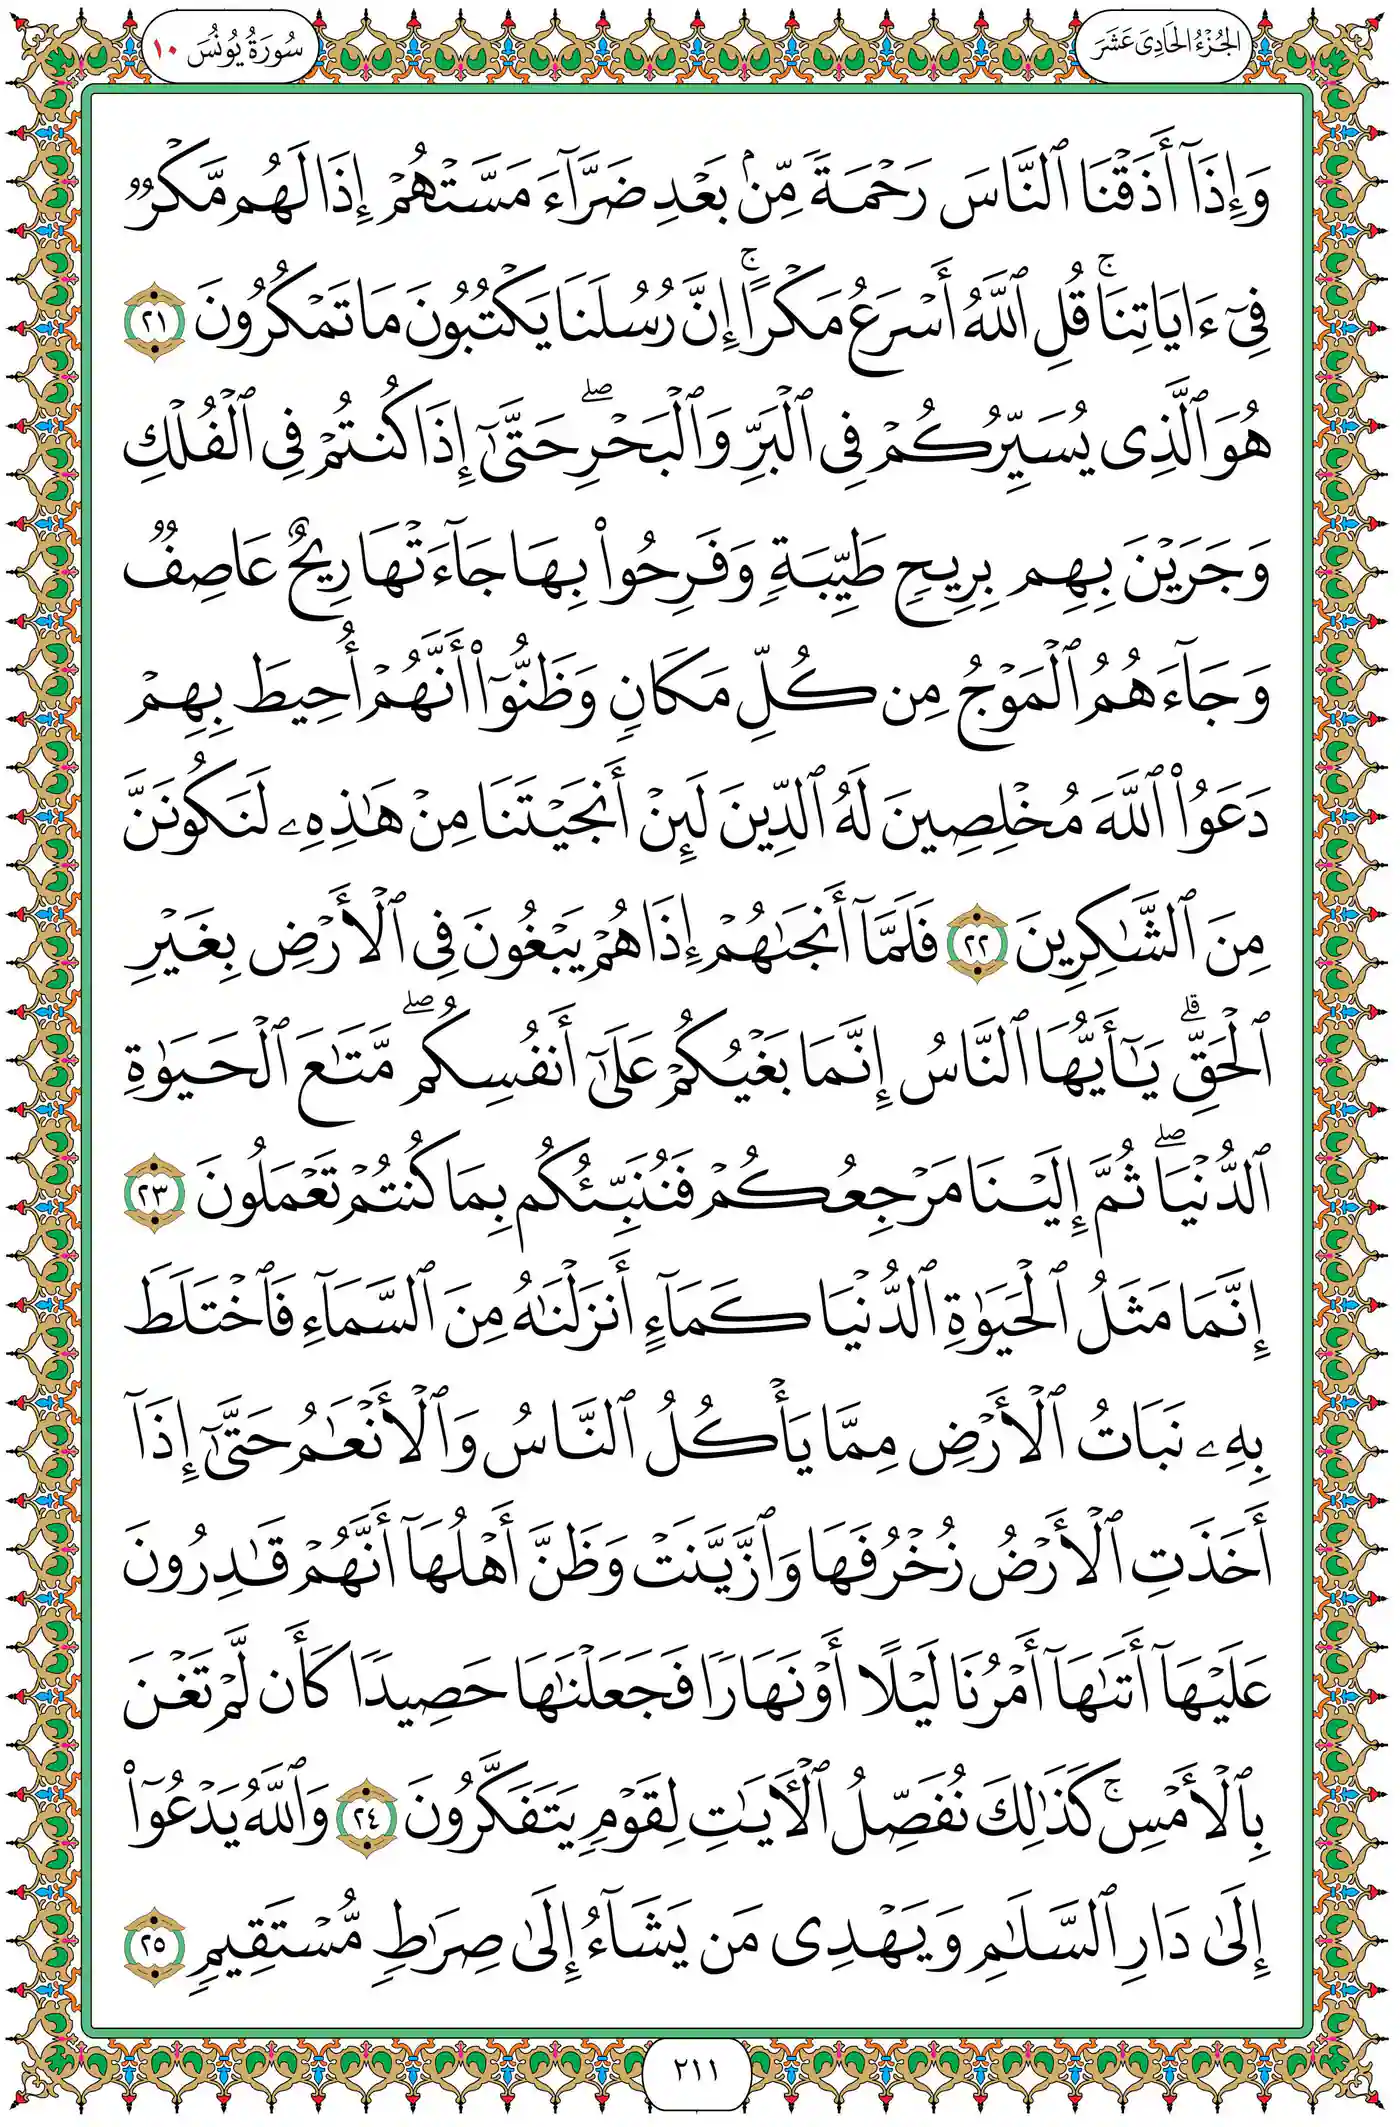 الجُزْءُ الحَادِىَ عَشَرَ
سُورَةُ يُونُسَ ١٠
وَإِذَآ أَذَقْنَا ٱلنَّاسَ رَحْمَةً مِّنۢ بَعْدِ ضَرَّآءَ مَسَّتْهُمْ إِذَا لَهُم مَّكْرٌ
فِىٓ ءَايَاتِنَا ۚ قُلِ ٱللَّهُ أَسْرَعُ مَكْرًا ۚ إِنَّ رُسُلَنَا يَكْتُبُونَ مَا تَمْكُرُونَ ٢١
هُوَ ٱلَّذِى يُسَيِّرُكُمْ فِى ٱلْبَرِّ وَٱلْبَحْرِ ۖ حَتَّىٰٓ إِذَا كُنتُمْ فِى ٱلْفُلْكِ
وَجَرَيْنَ بِهِم بِرِيحٍ طَيِّبَةٍ وَفَرِحُوا۟ بِهَا جَآءَتْهَا رِيحٌ عَاصِفٌ
وَجَآءَهُمُ ٱلْمَوْجُ مِن كُلِّ مَكَانٍ وَظَنُّوٓا۟ أَنَّهُمْ أُحِيطَ بِهِمْ
دَعَوُا۟ ٱللَّهَ مُخْلِصِينَ لَهُ ٱلدِّينَ لَئِنْ أَنجَيْتَنَا مِنْ هَـٰذِهِۦ لَنَكُونَنَّ
مِنَ ٱلشَّـٰكِرِينَ ٢٢ فَلَمَّآ أَنجَىٰهُمْ إِذَا هُمْ يَبْغُونَ فِى ٱلْأَرْضِ بِغَيْرِ
ٱلْحَقِّ ۗ يَـٰٓأَيُّهَا ٱلنَّاسُ إِنَّمَا بَغْيُكُمْ عَلَىٰٓ أَنفُسِكُم ۖ مَّتَـٰعَ ٱلْحَيَوٰةِ
ٱلدُّنْيَا ۖ ثُمَّ إِلَيْنَا مَرْجِعُكُمْ فَنُنَبِّئُكُم بِمَا كُنتُمْ تَعْمَلُونَ ٢٣
إِنَّمَا مَثَلُ ٱلْحَيَوٰةِ ٱلدُّنْيَا كَمَآءٍ أَنزَلْنَـٰهُ مِنَ ٱلسَّمَآءِ فَٱخْتَلَطَ
بِهِۦ نَبَاتُ ٱلْأَرْضِ مِمَّا يَأْكُلُ ٱلنَّاسُ وَٱلْأَنْعَـٰمُ حَتَّىٰٓ إِذَآ
أَخَذَتِ ٱلْأَرْضُ زُخْرُفَهَا وَٱزَّيَّنَتْ وَظَنَّ أَهْلُهَآ أَنَّهُمْ قَـٰدِرُونَ
عَلَيْهَآ أَتَىٰهَآ أَمْرُنَا لَيْلًا أَوْ نَهَارًا فَجَعَلْنَـٰهَا حَصِيدًا كَأَن لَّمْ تَغْنَ
بِٱلْأَمْسِ ۚ كَذَٰلِكَ نُفَصِّلُ ٱلْـَٔايَـٰتِ لِقَوْمٍ يَتَفَكَّرُونَ ٢٤ وَٱللَّهُ يَدْعُوٓا۟
إِلَىٰ دَارِ ٱلسَّلَـٰمِ وَيَهْدِى مَن يَشَآءُ إِلَىٰ صِرَٰطٍ مُّسْتَقِيمٍ ٢٥
٢١١